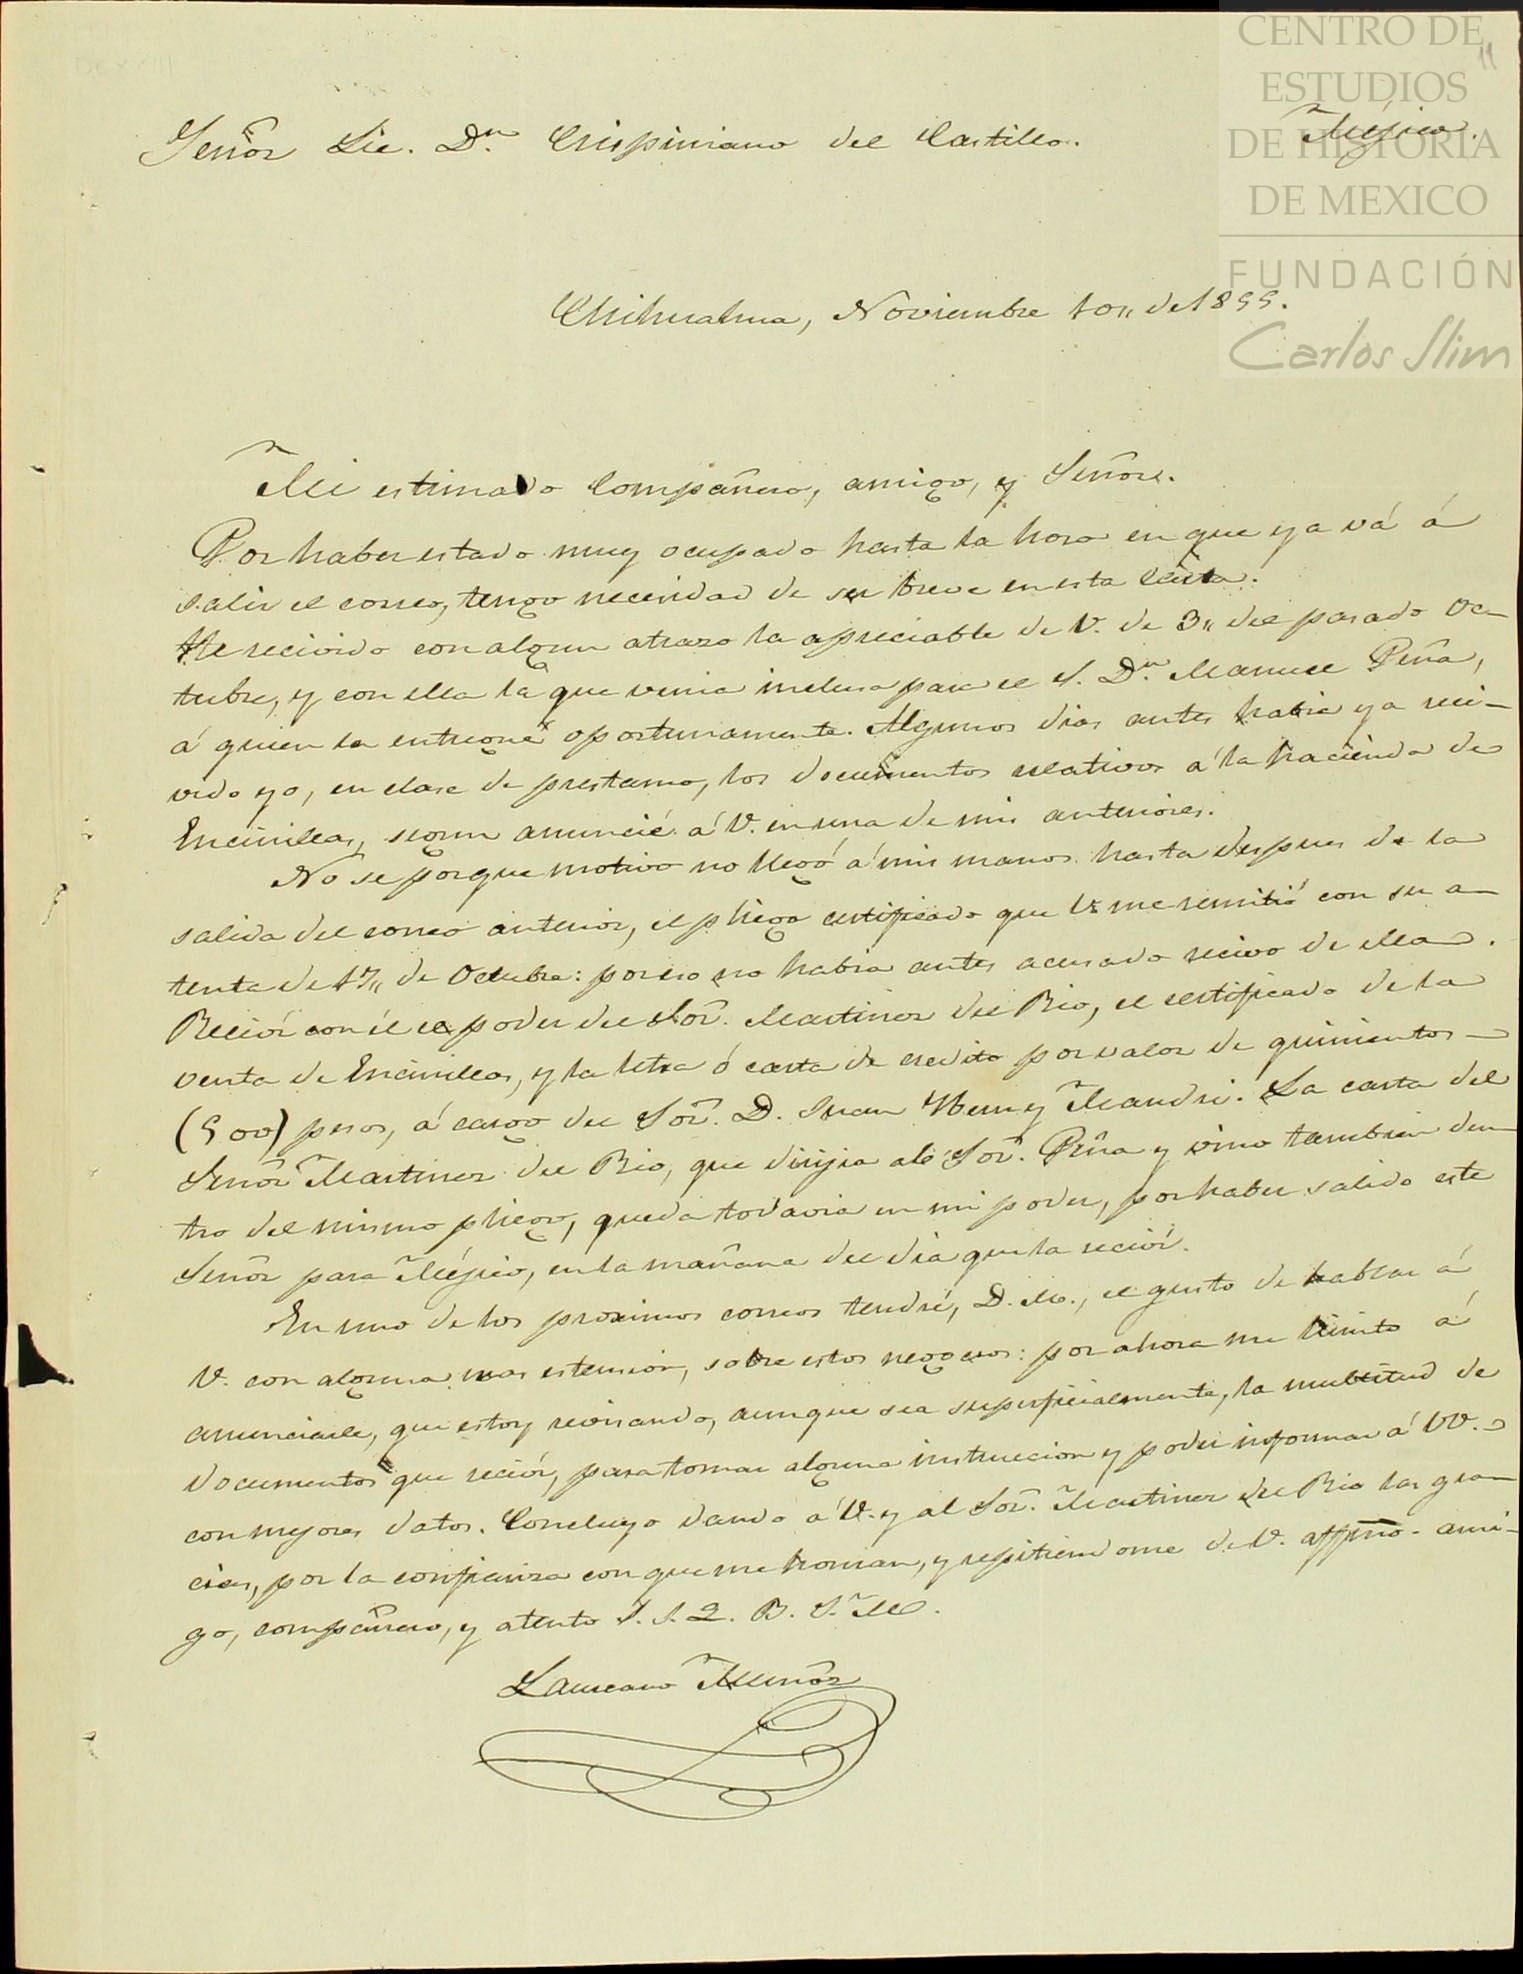 CENTRO DE
ESTUDIOS
DE HISTORIA
DE MEXICO
FUNDACIÓN
Carlos Slim
11
Señor Lic. Dn. Crispiniano del Castillo. Méjico.
Chihuahua, Noviembre 10,, de 1855.
Mi estimado Compañero, amigo, y Señor.
Por haber estado muy ocupado hasta la hora en que ya vá á
salir el correo, tengo necesidad de ser breve en esta carta.
He recivido con algun atrazo la apreciable de V. de 3,, del pasado Oc-
tubre, y con ella la que venia inclusa para el S. Dn. Manuel Peña,
á quien la entregué oportunamente. Algunos dias antes habia ya reci-
vido yo, en clase de prestamo, los documentos relativos á la hacienda de
Encinillas, segun anuncié á V. en una de mis anteriores.
No se porque motivo no llegó á mis manos hasta despues de la
salida del correo anterior, el pliego certificado que V. me remitió con su a-
tenta de 17,, de Octubre: por eso no habia antes acusado recivo de ella.
Recivi con él el poder del Sor. Martinez del Rio, el certificado de la
venta de Encinillas, y la letra ó carta de credito por valor de quinientos
(500) pesos, á cargo del Sor. D. Juan Henry Mandri. La carta del
Señor Martinez del Rio, que dirijia al Sor. Peña y vino tambien den-
tro del mismo pliego, queda todavia en mi poder, por haber salido este
Señor para Méjico, en la mañana del dia que la recivi.
En uno de los proximos correos tendré, D. M., el gusto de hablar á
V. con alguna mas estension, sobre estos negocios: por ahora me limito á
anunciarle, que estoy revisando, aunque sea superficialmente, la multitud de
documentos que recivi, para tomar alguna instruccion y poder informar á VV.
con mejores datos. Concluyo dando á V. y al Sor. Martinez del Rio las gra-
cias, por la confianza con que me honran, y repitiendome de V. affmo. ami-
go, compañero, y atento S. S. Q. B. S. M.
Laureano Muñoz